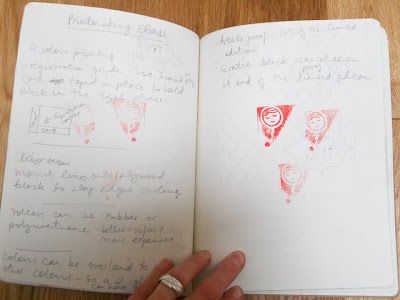 Printmaking class
4 colour printing
registration guide - use
card taped in place to hold
block in the same place.
card
Linocut
mount lino onto plywood
block to stop edges curling
rollers can be rubber or
polyurethane - better + softer +
more expensive.
colours can be overlaid to
other colours - so a 2 col
can have
Artists proof - 10% of the limited
edition
- Scratch block
at end of the limited edition